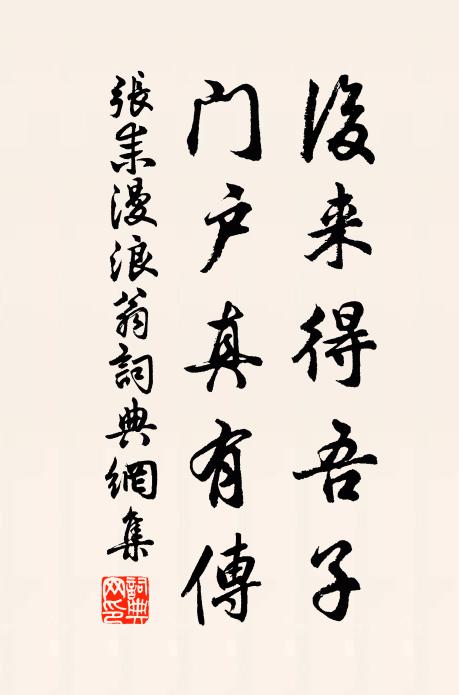 後来得吾子
門戶真有傳
張耒漫浪翁詞典網集
詞典
网印